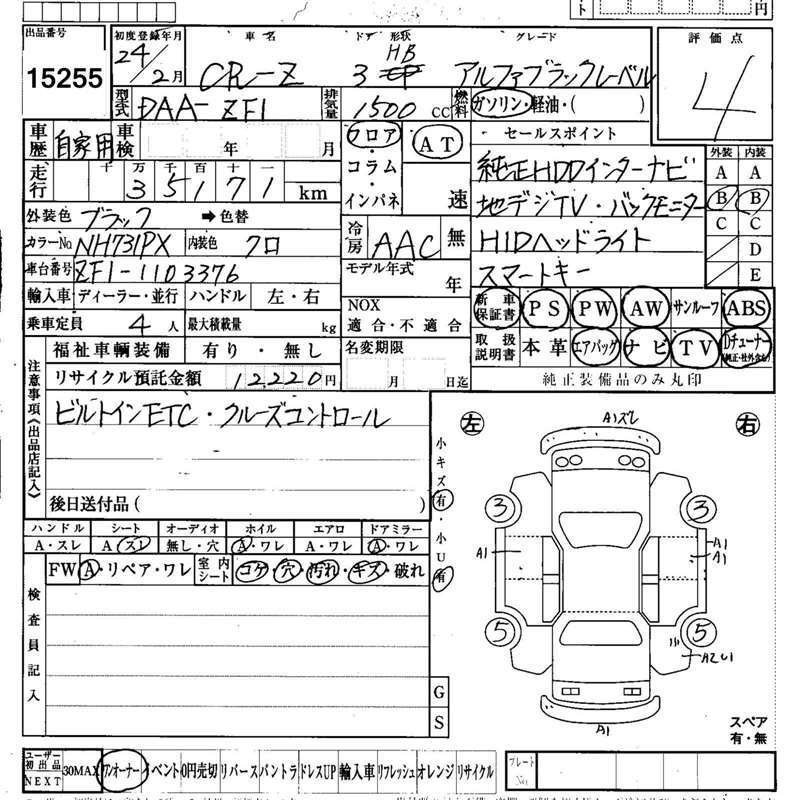 円
出品番号
15255
初度登録年月
24/2月
車名
CR-Z
ドア 形状
3 HB
グレード
アルファブラックレーベル
評価点
4
型式
DAA-ZF1
排気量
1500 CC
燃料
ガソリン・軽油・( )
車歴
自家用
車検
年 月
フロア・コラム・インパネ
AT
速
セールスポイント
純正HDDインターナビ
地デジTV・バックモニター
HIDヘッドライト
スマートキー
外装 内装
A A
B B
C C
D
E
走行
十 万 千 百 十 一
35171 km
外装色 ブラック ➡色替
カラーNo. NH731PX 内装色 クロ
冷房 AAC 無
車台番号 ZF1-1103376
モデル年式 年
輸入車 ディーラー・並行 ハンドル 左・右
NOX
適合・不適合
乗車定員 4人 最大積載量 kg
新車保証書 PS PW AW サンルーフ ABS
取扱説明書 本革 エアバッグ ナビ TV Dチューナー(純正・社外含む)
純正装備品のみ丸印
福祉車輌装備 有り・無し
名変期限
月 日迄
リサイクル預託金額 12220円
注意事項《出品店記入》
ビルトインETC・クルーズコントロール
後日送付品( )
小キズ有・小U有
ハンドル シート オーディオ ホイル エアロ ドアミラー
A・スレ A スレ 無し・穴 A・ワレ A・ワレ A・ワレ
FW A・リペア・ワレ 室内シート コゲ・穴・汚れ・キズ・破れ
検査員記入
G
S
左 右
A1ズレ
3 3
A1
A1
A1
5 5
A2U1
A1
スペア
有・無
ユーザー初出品 NEXT 30MAX ワンオーナー イベント 0円売切 リバース バントラ ドレスUP 輸入車 リフレッシュ オレンジ リサイクル
プレートNo.